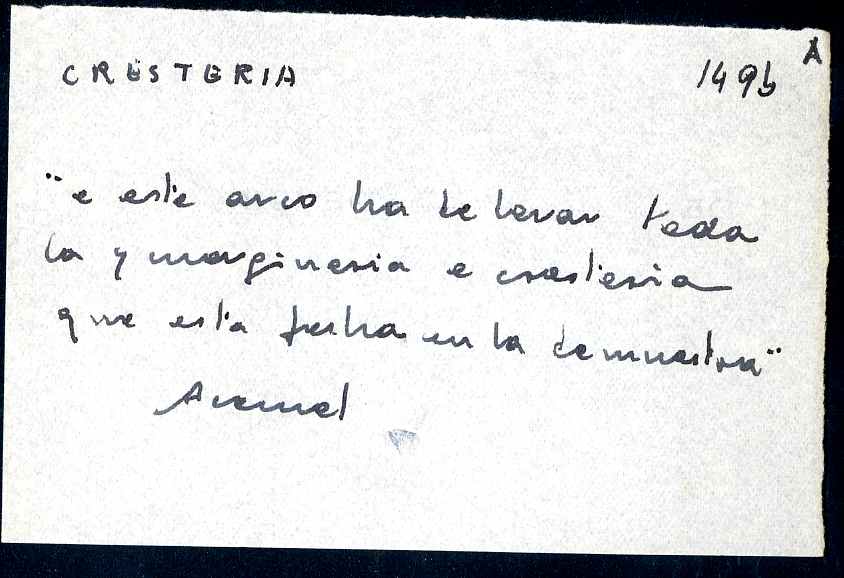 A
CRESTERIA 149b
"e este arco ha de levar toda
la ymagineria e cresteria
que esta fecha en la demuestra"